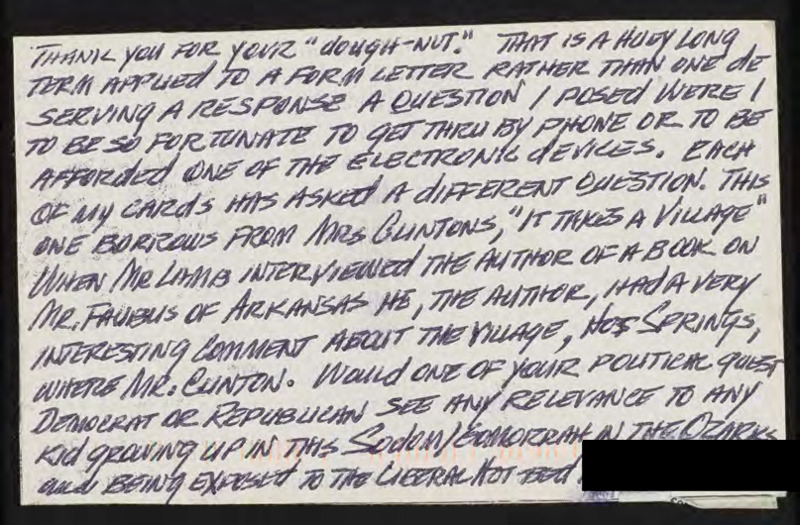 THANK YOU FOR YOUR "dOUGH-NUT." THAT IS A HUEY LONG
TERM APPLIED TO A FORM LETTER RATHER THAN ONE dE
SERVING A RESPONSE A QUESTION I POSED WERE I
TO BE SO FORTUNATE TO GET THRU BY PHONE OR TO BE
AFFORdEd ONE OF THE ELECTRONIC dEVICES. EACH
OF MY CARdS HAS ASKEd A dIFFERENT QUESTION. THIS
ONE BORROWS FROM MRS CLINTONS, "IT TAKES A VILLAGE"
WHEN MR LAMB INTERVIEWED THE AUTHOR OF A BOOK ON
MR. FAUBUS OF ARKANSAS HE, THE AUTHOR, HAd A VERY
INTERESTING COMMENT ABOUT THE VILLAGE, HOT SPRINGS,
WHERE MR. CLINTON. WOULD ONE OF YOUR POLITICAL GUEST
DEMOCRAT OR REPUBLICAN SEE ANY RELEVANCE TO ANY
KID GROWING UP IN THIS SODOM/GOMORRAH IN THE OZARKS
and BEING EXPOSED TO THE LIBERAL HOT BED